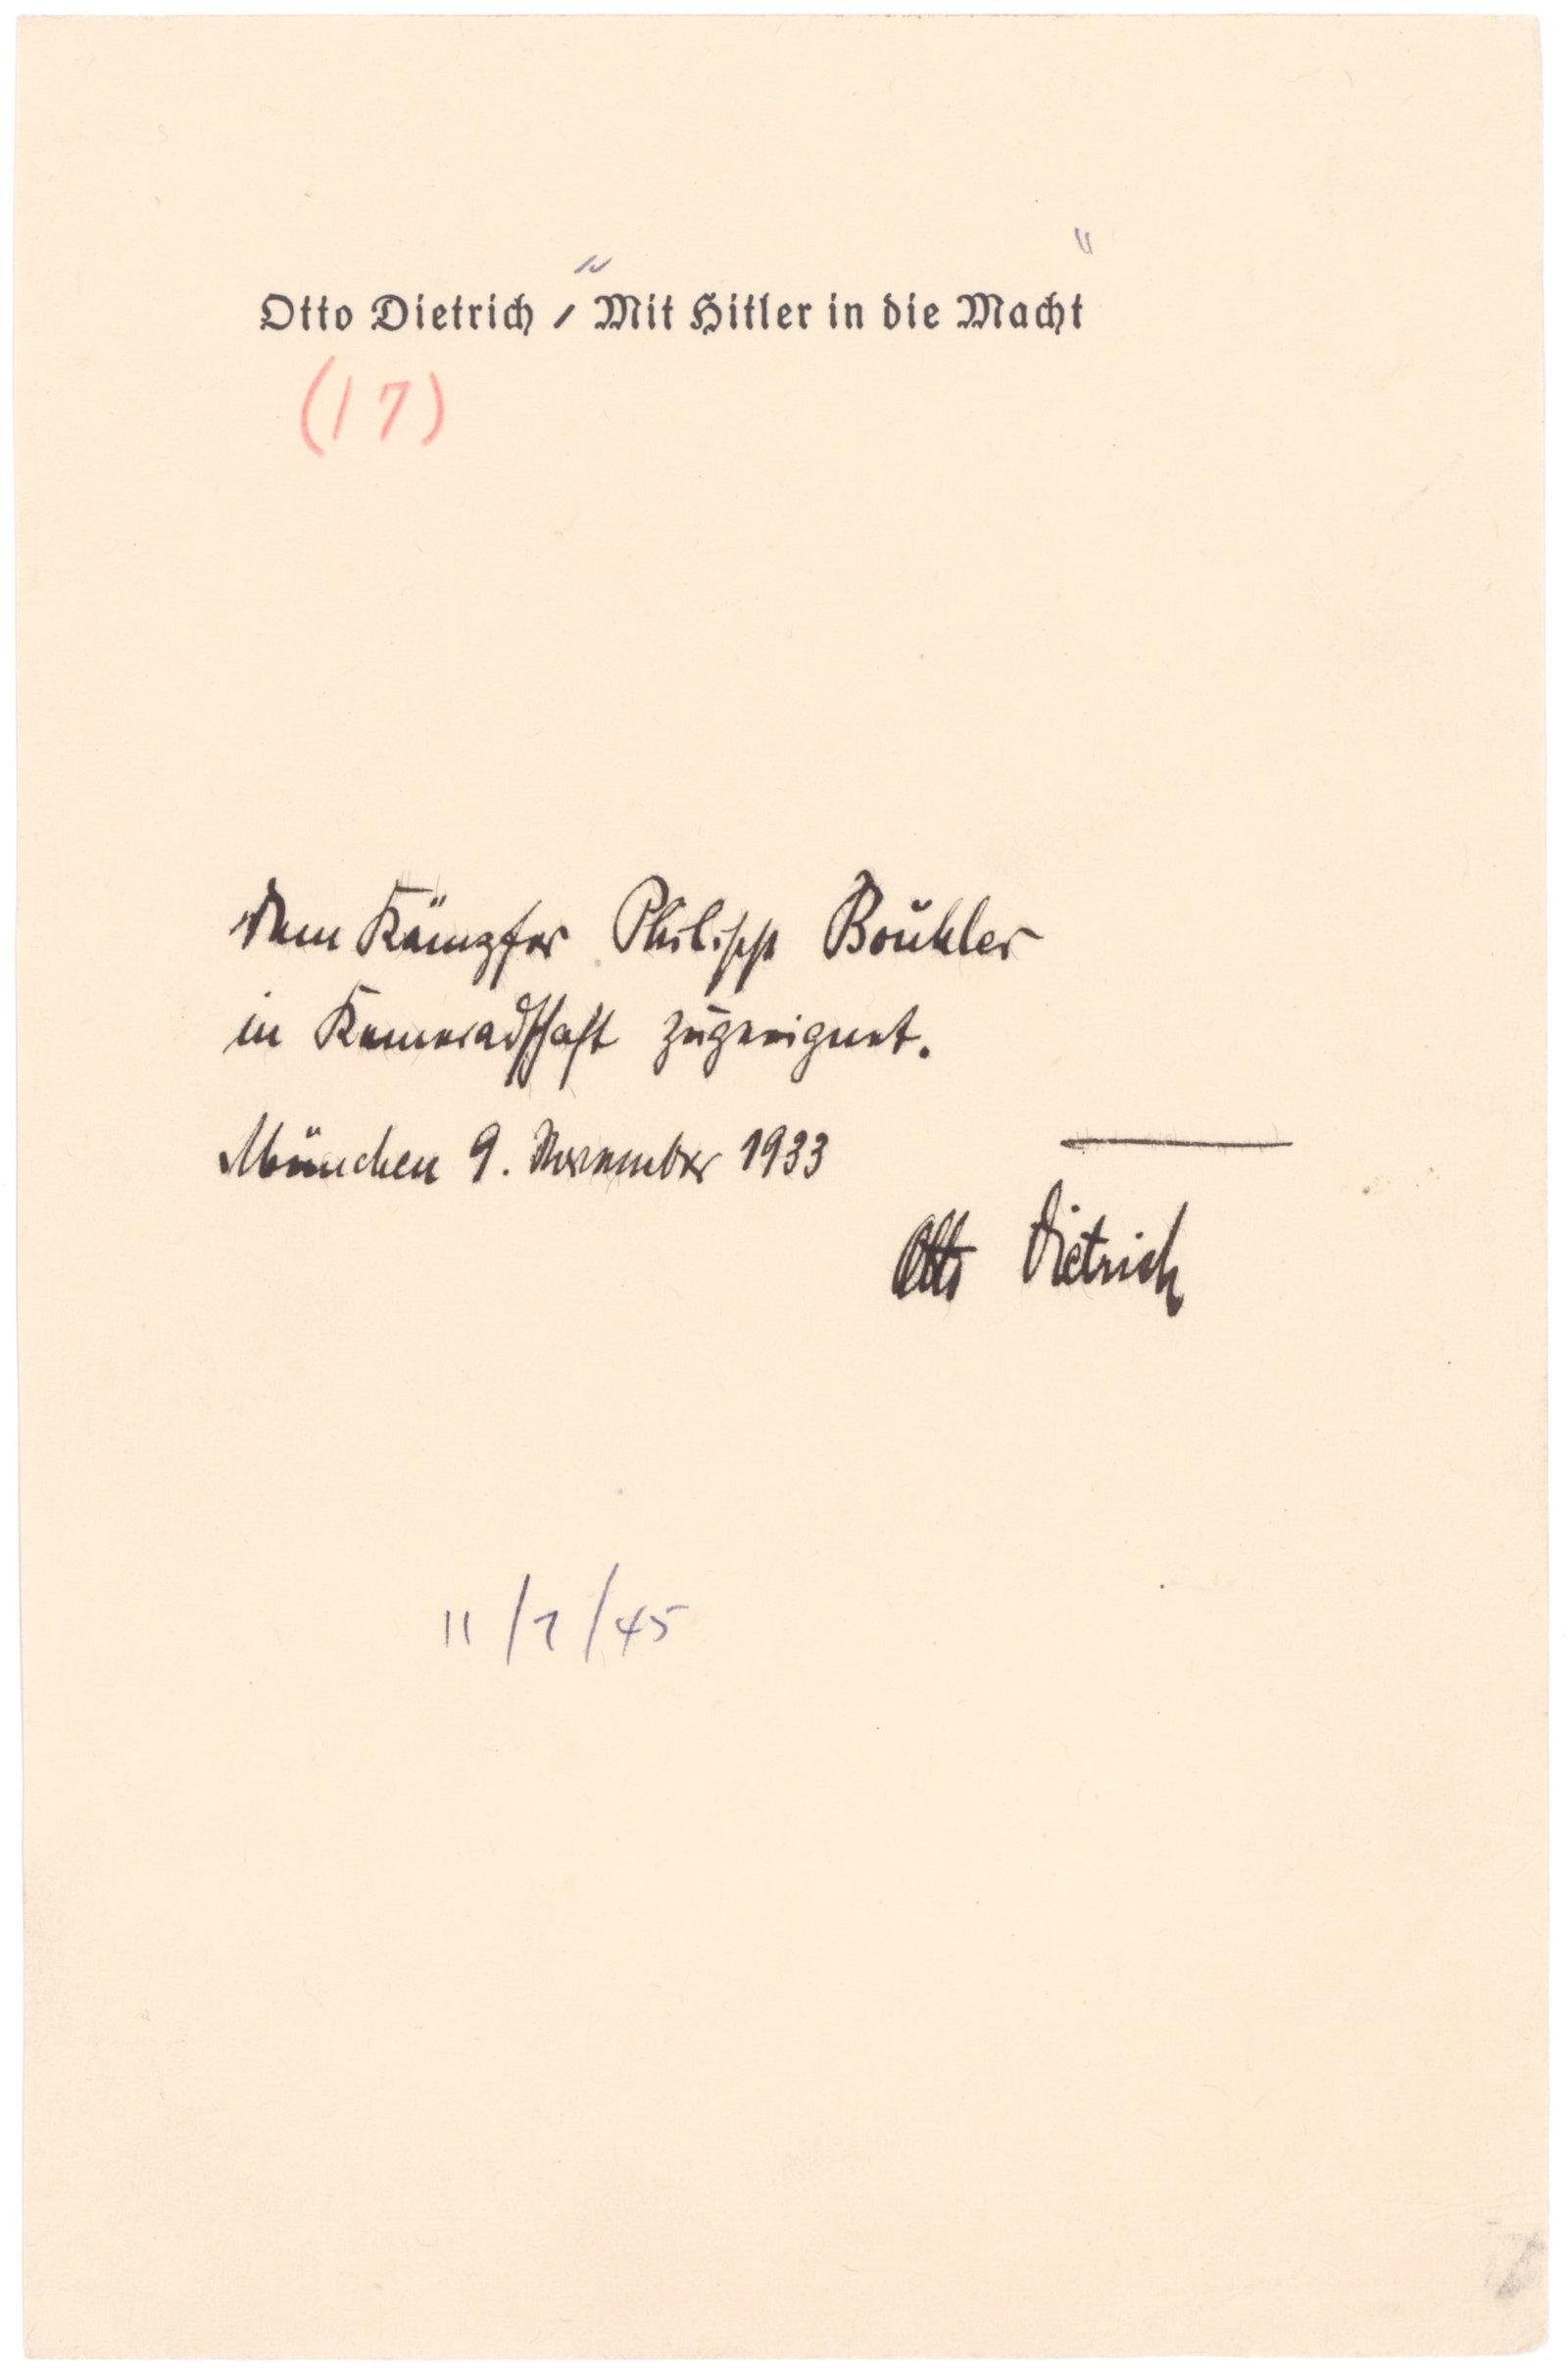 Otto Dietrich / "Mit Hitler in die Macht"
(17)
Dem Kämpfer Philipp Bouhler
in Kameradschaft zugeeignet.
München 9. November 1933
Otto Dietrich
11/7/45